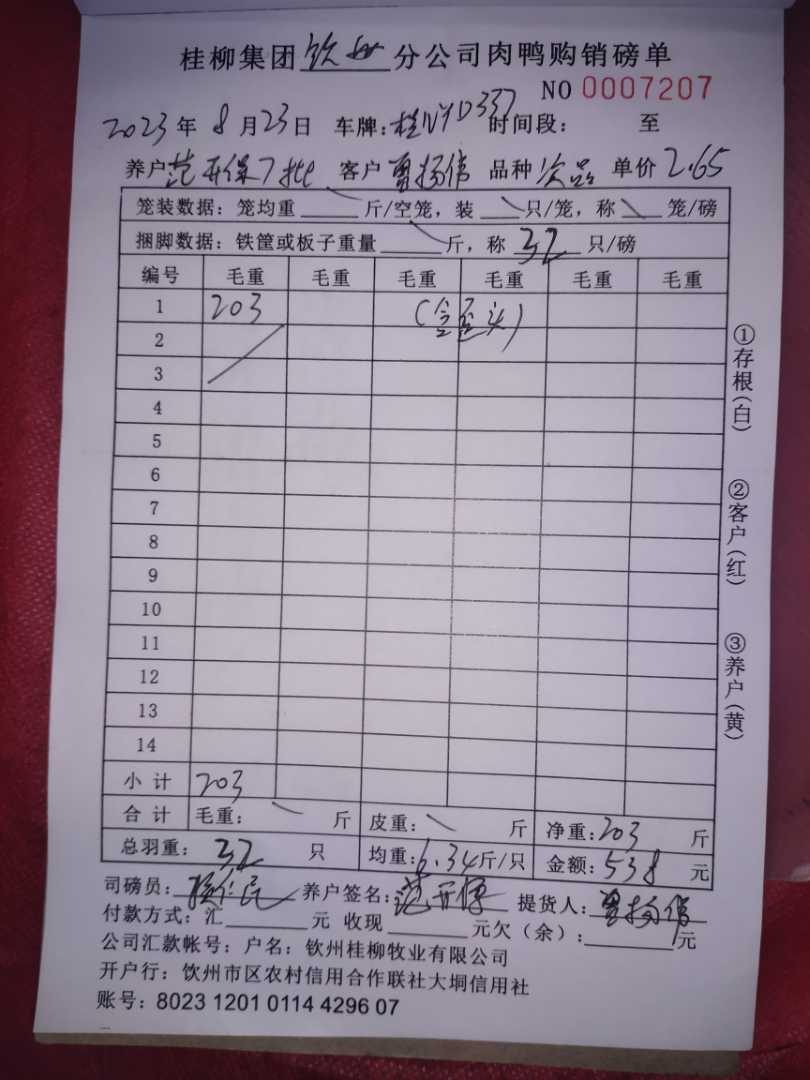 桂柳集团钦州分公司肉鸭购销磅单
NO 0007207
2023年8月23日 车牌:桂NYD337 时间段: 至
养户范开保7批 客户曾扬伟 品种次品 单价2.65
笼装数据：笼均重 斤/空笼，装 只/笼，称 笼/磅
捆脚数据：铁筐或板子重量 斤，称 32 只/磅
编号 毛重 毛重 毛重 毛重 毛重 毛重
1 203
2
3
4
5
6
7
8
9
10
11
12
13
14
小计 203
合计 毛重： 斤 皮重： 斤 净重：203 斤
总羽重： 32 只 均重：6.34斤/只 金额：538 元
司磅员： 养户签名：范开保 提货人：曾扬伟
付款方式：汇 元 收现 元欠（余）： 元
公司汇款帐号：户名：钦州桂柳牧业有限公司
开户行：钦州市区农村信用合作联社大垌信用社
账号：8023 1201 0114 4296 07
①存根(白)
②客户(红)
③养户(黄)